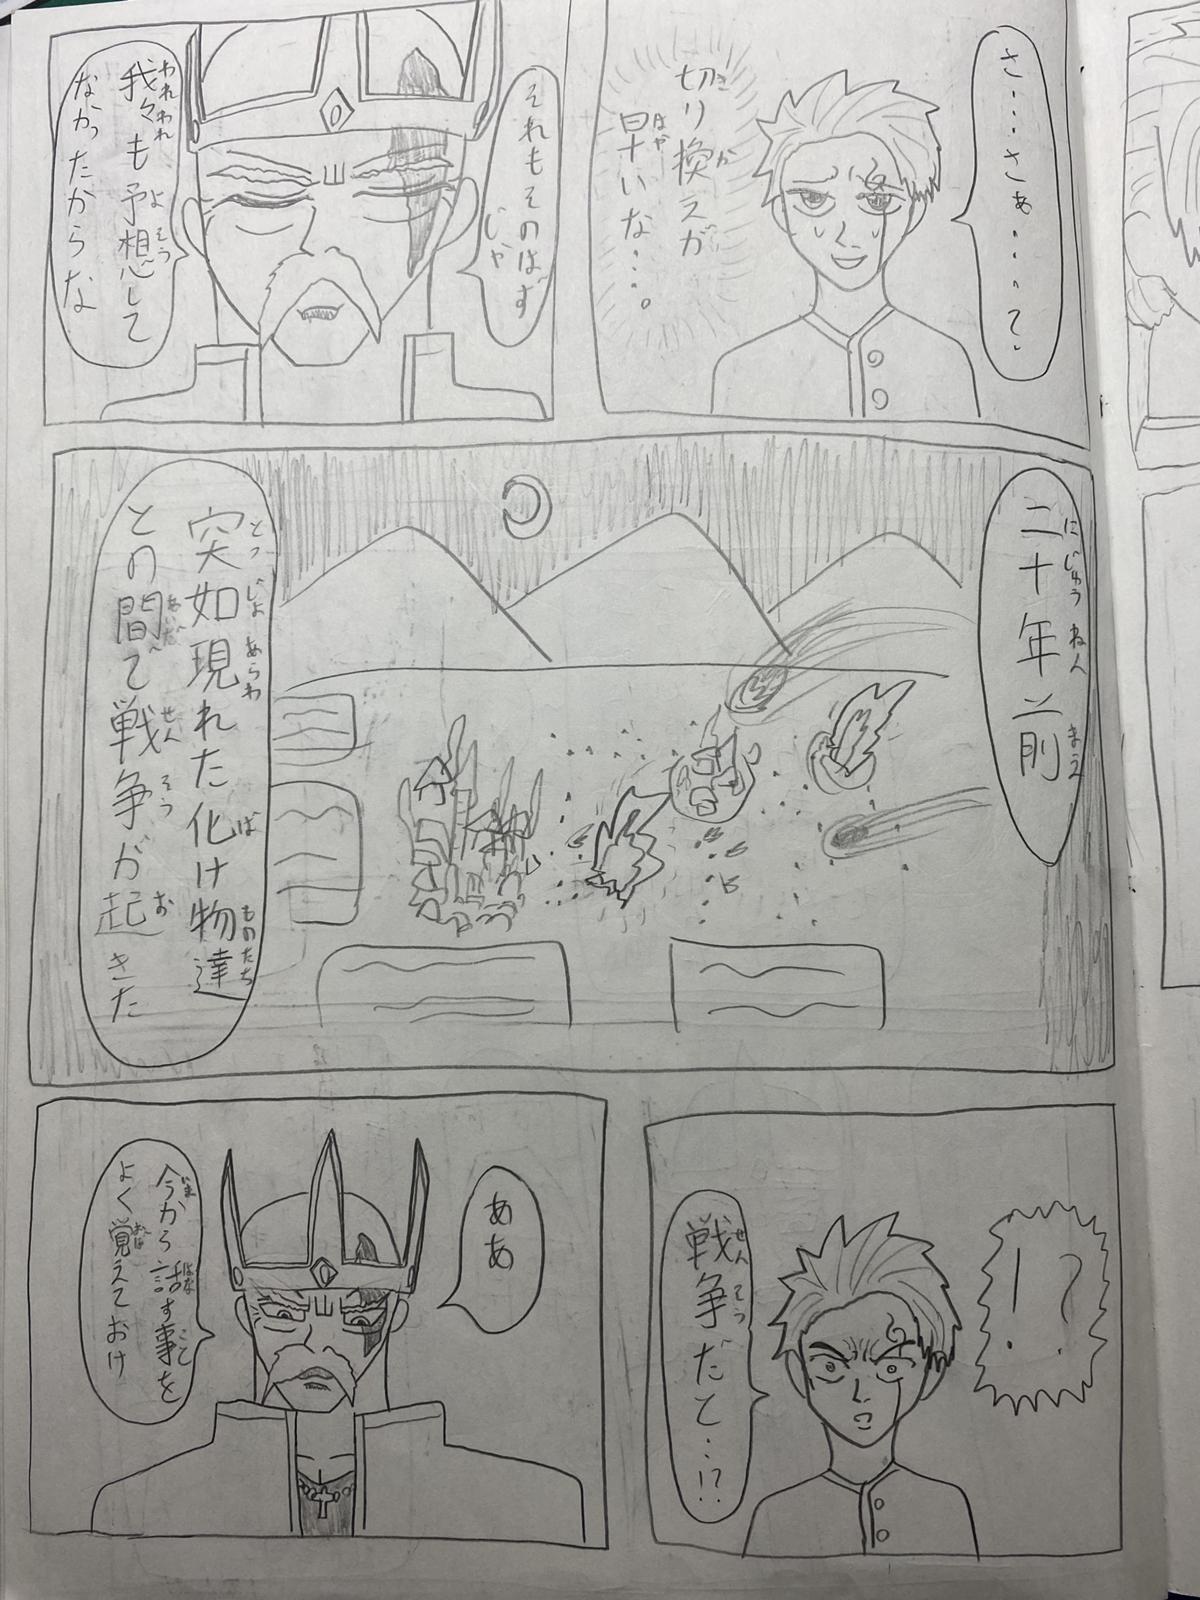 さ・・・・さぁ・・・・って、
切り換えが
早いな・・・。
それもそのはず
じゃ
我々も予想して
なかったからな
二十年前
突如現れた化け物達
との間で戦争が起きた
!?
戦争だと・・!?
ああ
今から話す事を
よく覚えておけ